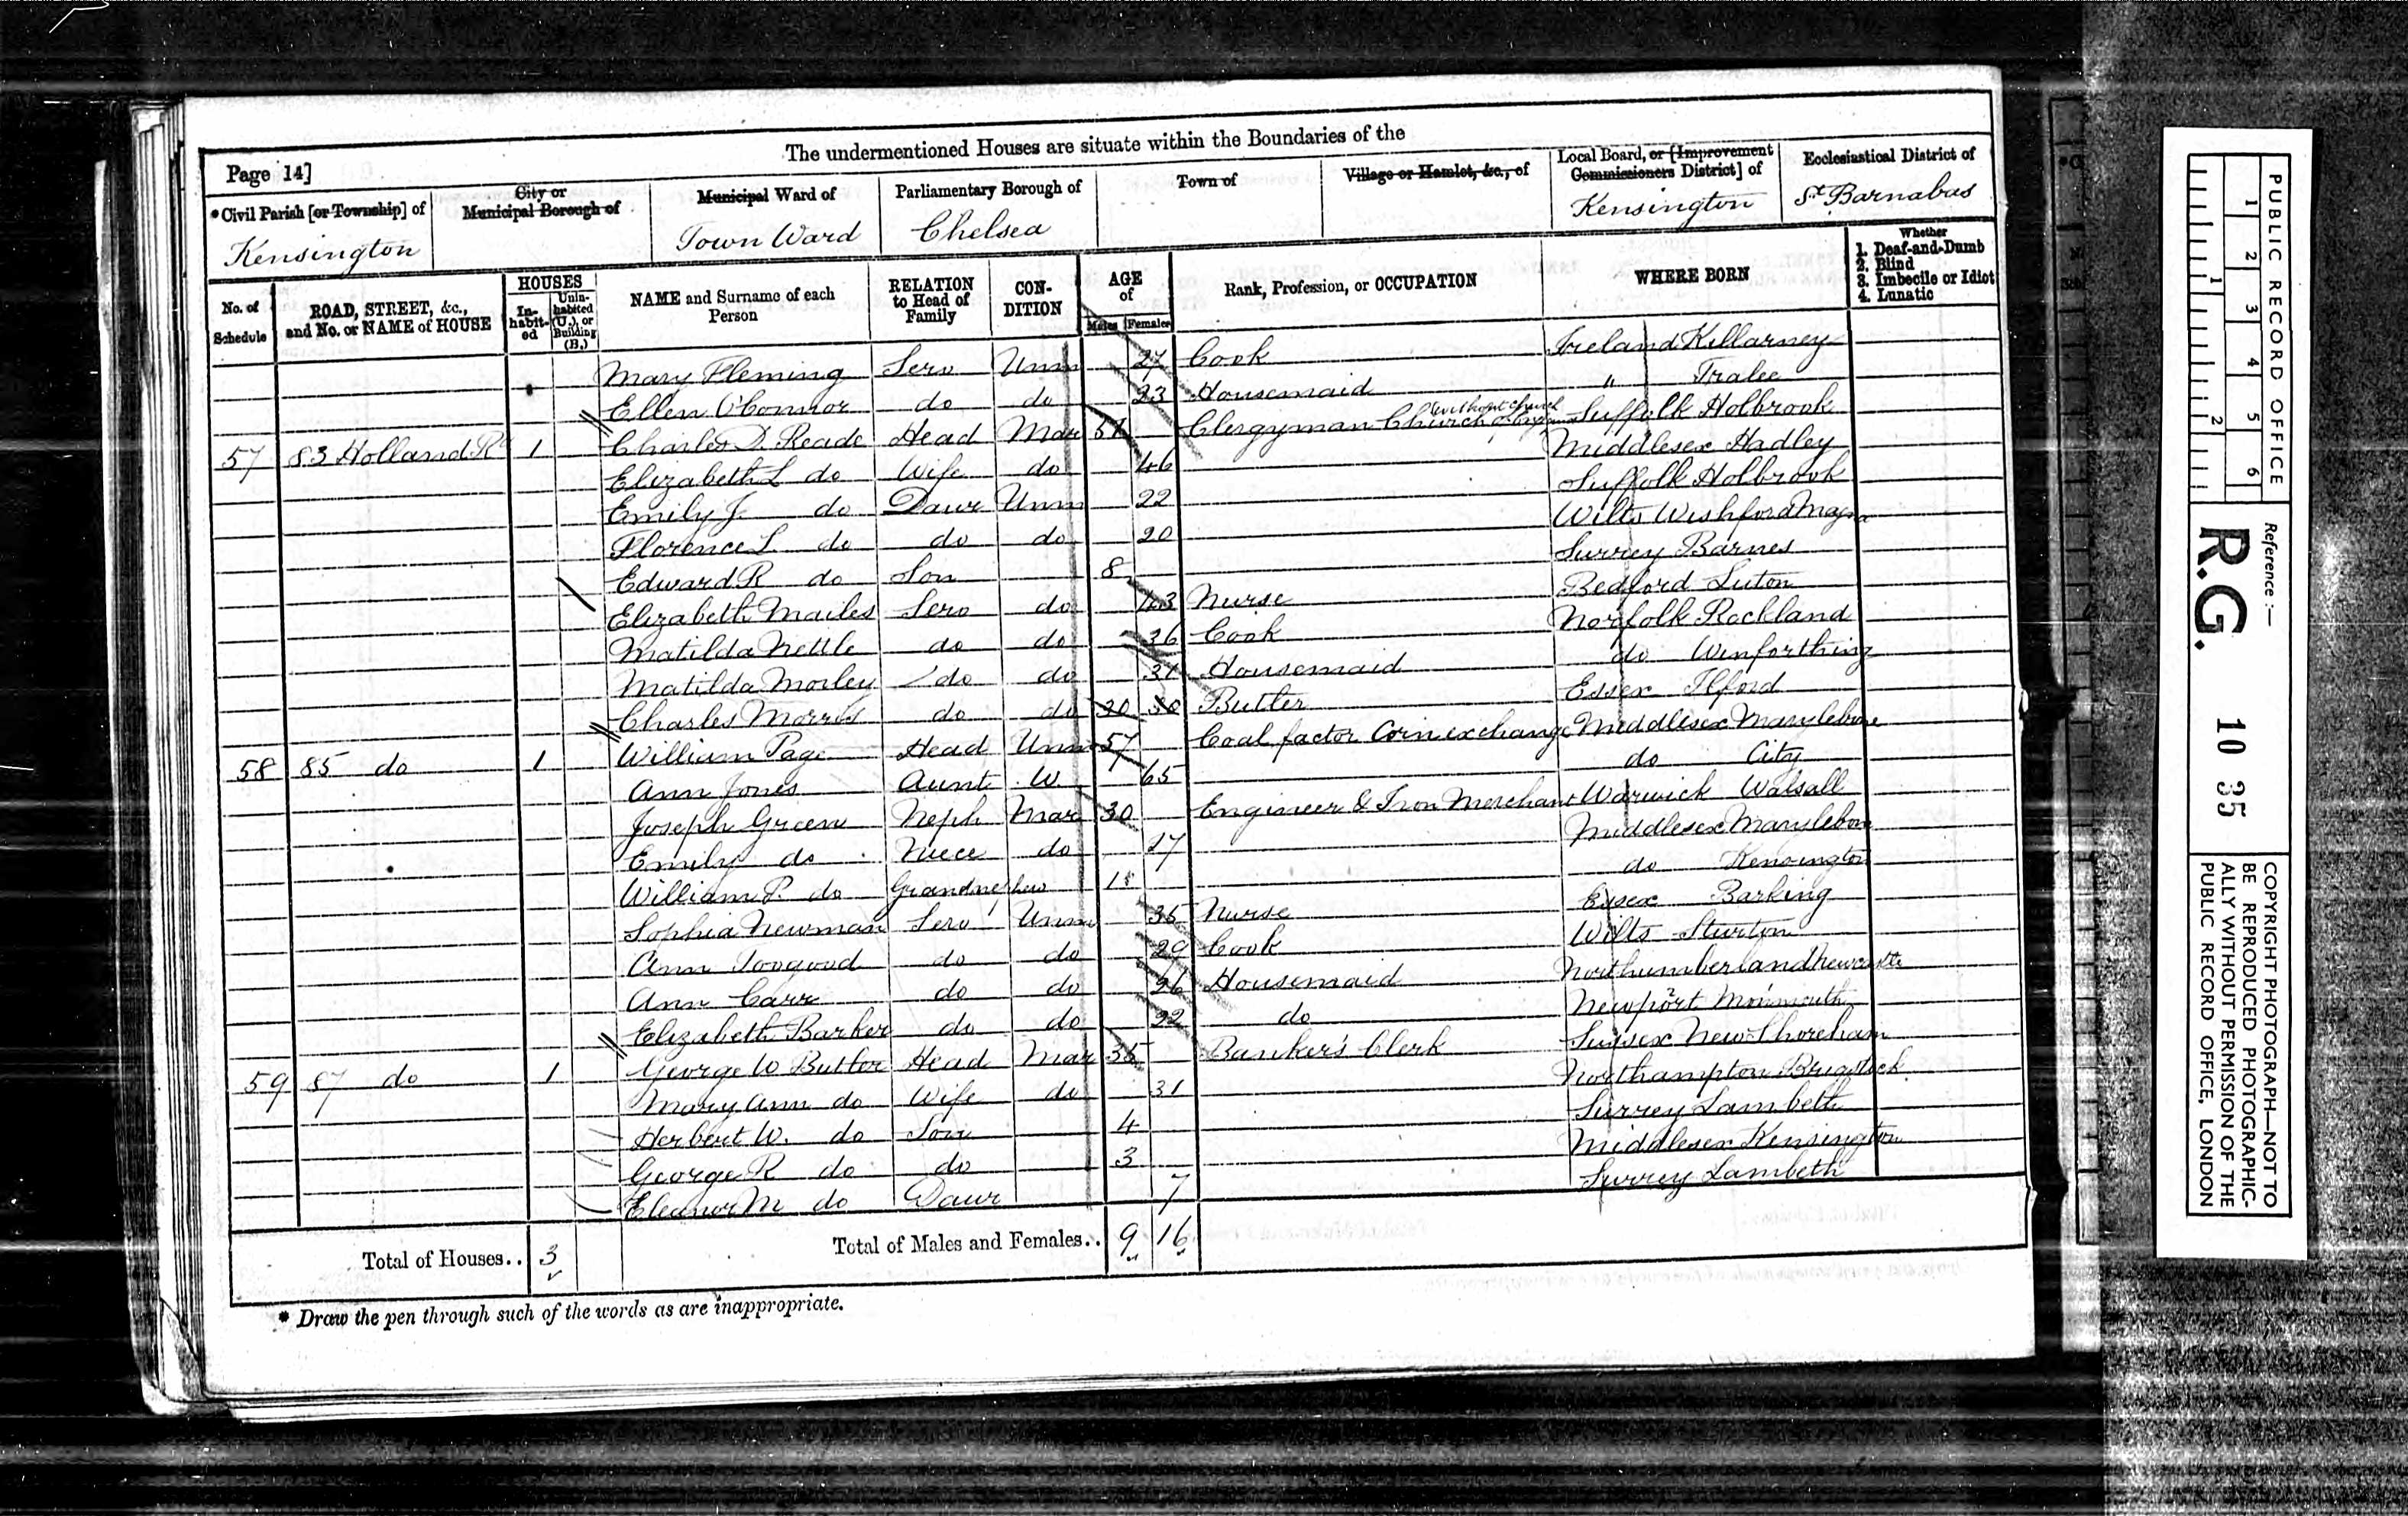 The undermentioned Houses are situate within the Boundaries of the
Page 14]
*Civil Parish [or Township] of
Kensington
City or Municipal Borough of
Municipal Ward of
Town Ward
Parliamentary Borough of
Chelsea
Town of
Village or Hamlet, &c., of
Local Board, or [Improvement Commissioners District] of
Kensington
Ecclesiastical District of
St Barnabas
No. of Schedule
ROAD, STREET, &c., and No. or NAME of HOUSE
HOUSES
In-habit-ed
Unin-habited (U.), or Building (B.)
NAME and Surname of each Person
RELATION to Head of Family
CON-DITION
AGE of
Males
Females
Rank, Profession, or OCCUPATION
WHERE BORN
Whether
1. Deaf-and-Dumb
2. Blind
3. Imbecile or Idiot
4. Lunatic
Mary Fleming Serv Unm 27 Cook Ireland Killarney
Ellen O'Connor do do 23 Housemaid " Tralee
57 83 Holland Rd 1 Charles D. Reade Head Mar 51 Clergyman Church of England without church Suffolk Holbrook
Elizabeth L do Wife do 46 Middlesex Hadley
Emily J do Daur Unm 22 Suffolk Holbrook
Florence L do do do 20 Wilts Wishford Magna
Edward R do Son 8 Surrey Barnes
Elizabeth Mailes Serv do 43 Nurse Bedford Luton
Matilda Nettle do do 36 Cook Norfolk Rockland
Matilda Morley do do 31 Housemaid do Winforthing
Charles Morris do do 30 30 Butler Essex Ilford
58 85 do 1 William Page Head Unm 57 Coal factor Corn exchange Middlesex Marylebone
Ann Jones Aunt W. 65 do City
Joseph Green Neph Mar 30 Engineer & Iron Merchant Warwick Walsall
Emily do Niece do 27 Middlesex Marylebone
William P. do Grandnephew 1 do Kensington
Sophia Newman Serv Unm 35 Nurse Essex Barking
Ann Toogood do do 29 Cook Wilts Sturton
Ann Carr do do 26 Housemaid Northumberland Newcastle
Elizabeth Barker do do 22 do Newport Monmouth
59 87 do 1 George W Butler Head Mar 35 Banker's Clerk Sussex New Shoreham
Mary Ann do Wife do 31 Northampton
Herbert W. do Son 4 Surrey Lambeth
George R do do 3 Middlesex Kensington
Eleanor M do Daur 7 Surrey Lambeth
Total of Houses.. 3
Total of Males and Females.. 9 16
* Draw the pen through such of the words as are inappropriate.
PUBLIC RECORD OFFICE
1 2 3 4 5 6
1 2
Reference :—
R.G. 10 35
COPYRIGHT PHOTOGRAPH—NOT TO
BE REPRODUCED PHOTOGRAPHIC-
ALLY WITHOUT PERMISSION OF THE
PUBLIC RECORD OFFICE, LONDON